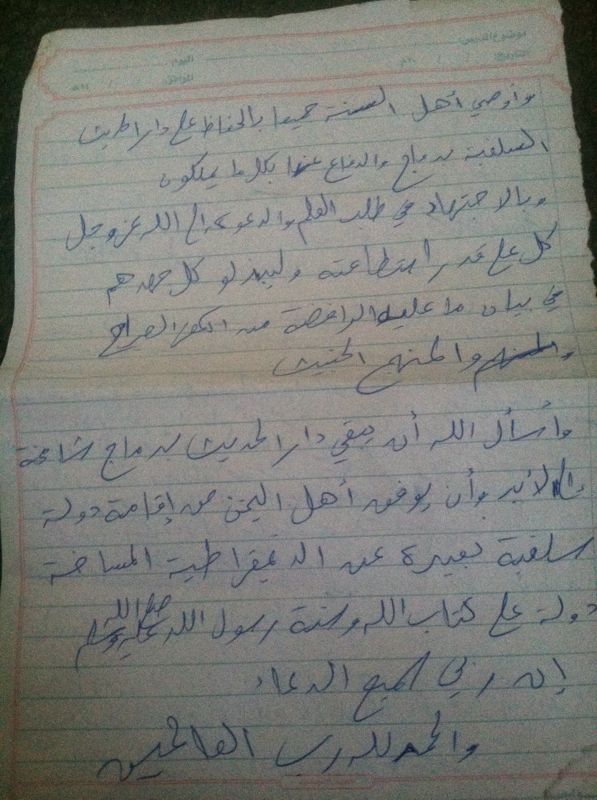 موضوع الدرس
التاريخ / / م
اليوم
الموافق / / هـ
وأوصي أهل السنة جميعا بالحفاظ على دار الحديث
السلفية بدماج والدفاع عنها بكل ما يملكون
وبالاجتهاد في طلب العلم والدعوة إلى الله عز وجل
كل على قدر استطاعته وليبذلو كل جهدهم
في بيان ما عليه الرافضة من الكفر الصراح
والمنهج الخبيث
وأسأل الله أن يبقي دار الحديث بدماج شامخة
إلى الأبد وأن يوفق أهل اليمن من إقامة دولة
سلفية بعيدة عن الديمقراطية
دولة على كتاب الله وسنة رسول الله صلى الله عليه وسلم
إن ربي لسميع الدعاء
والحمد لله رب العالمين